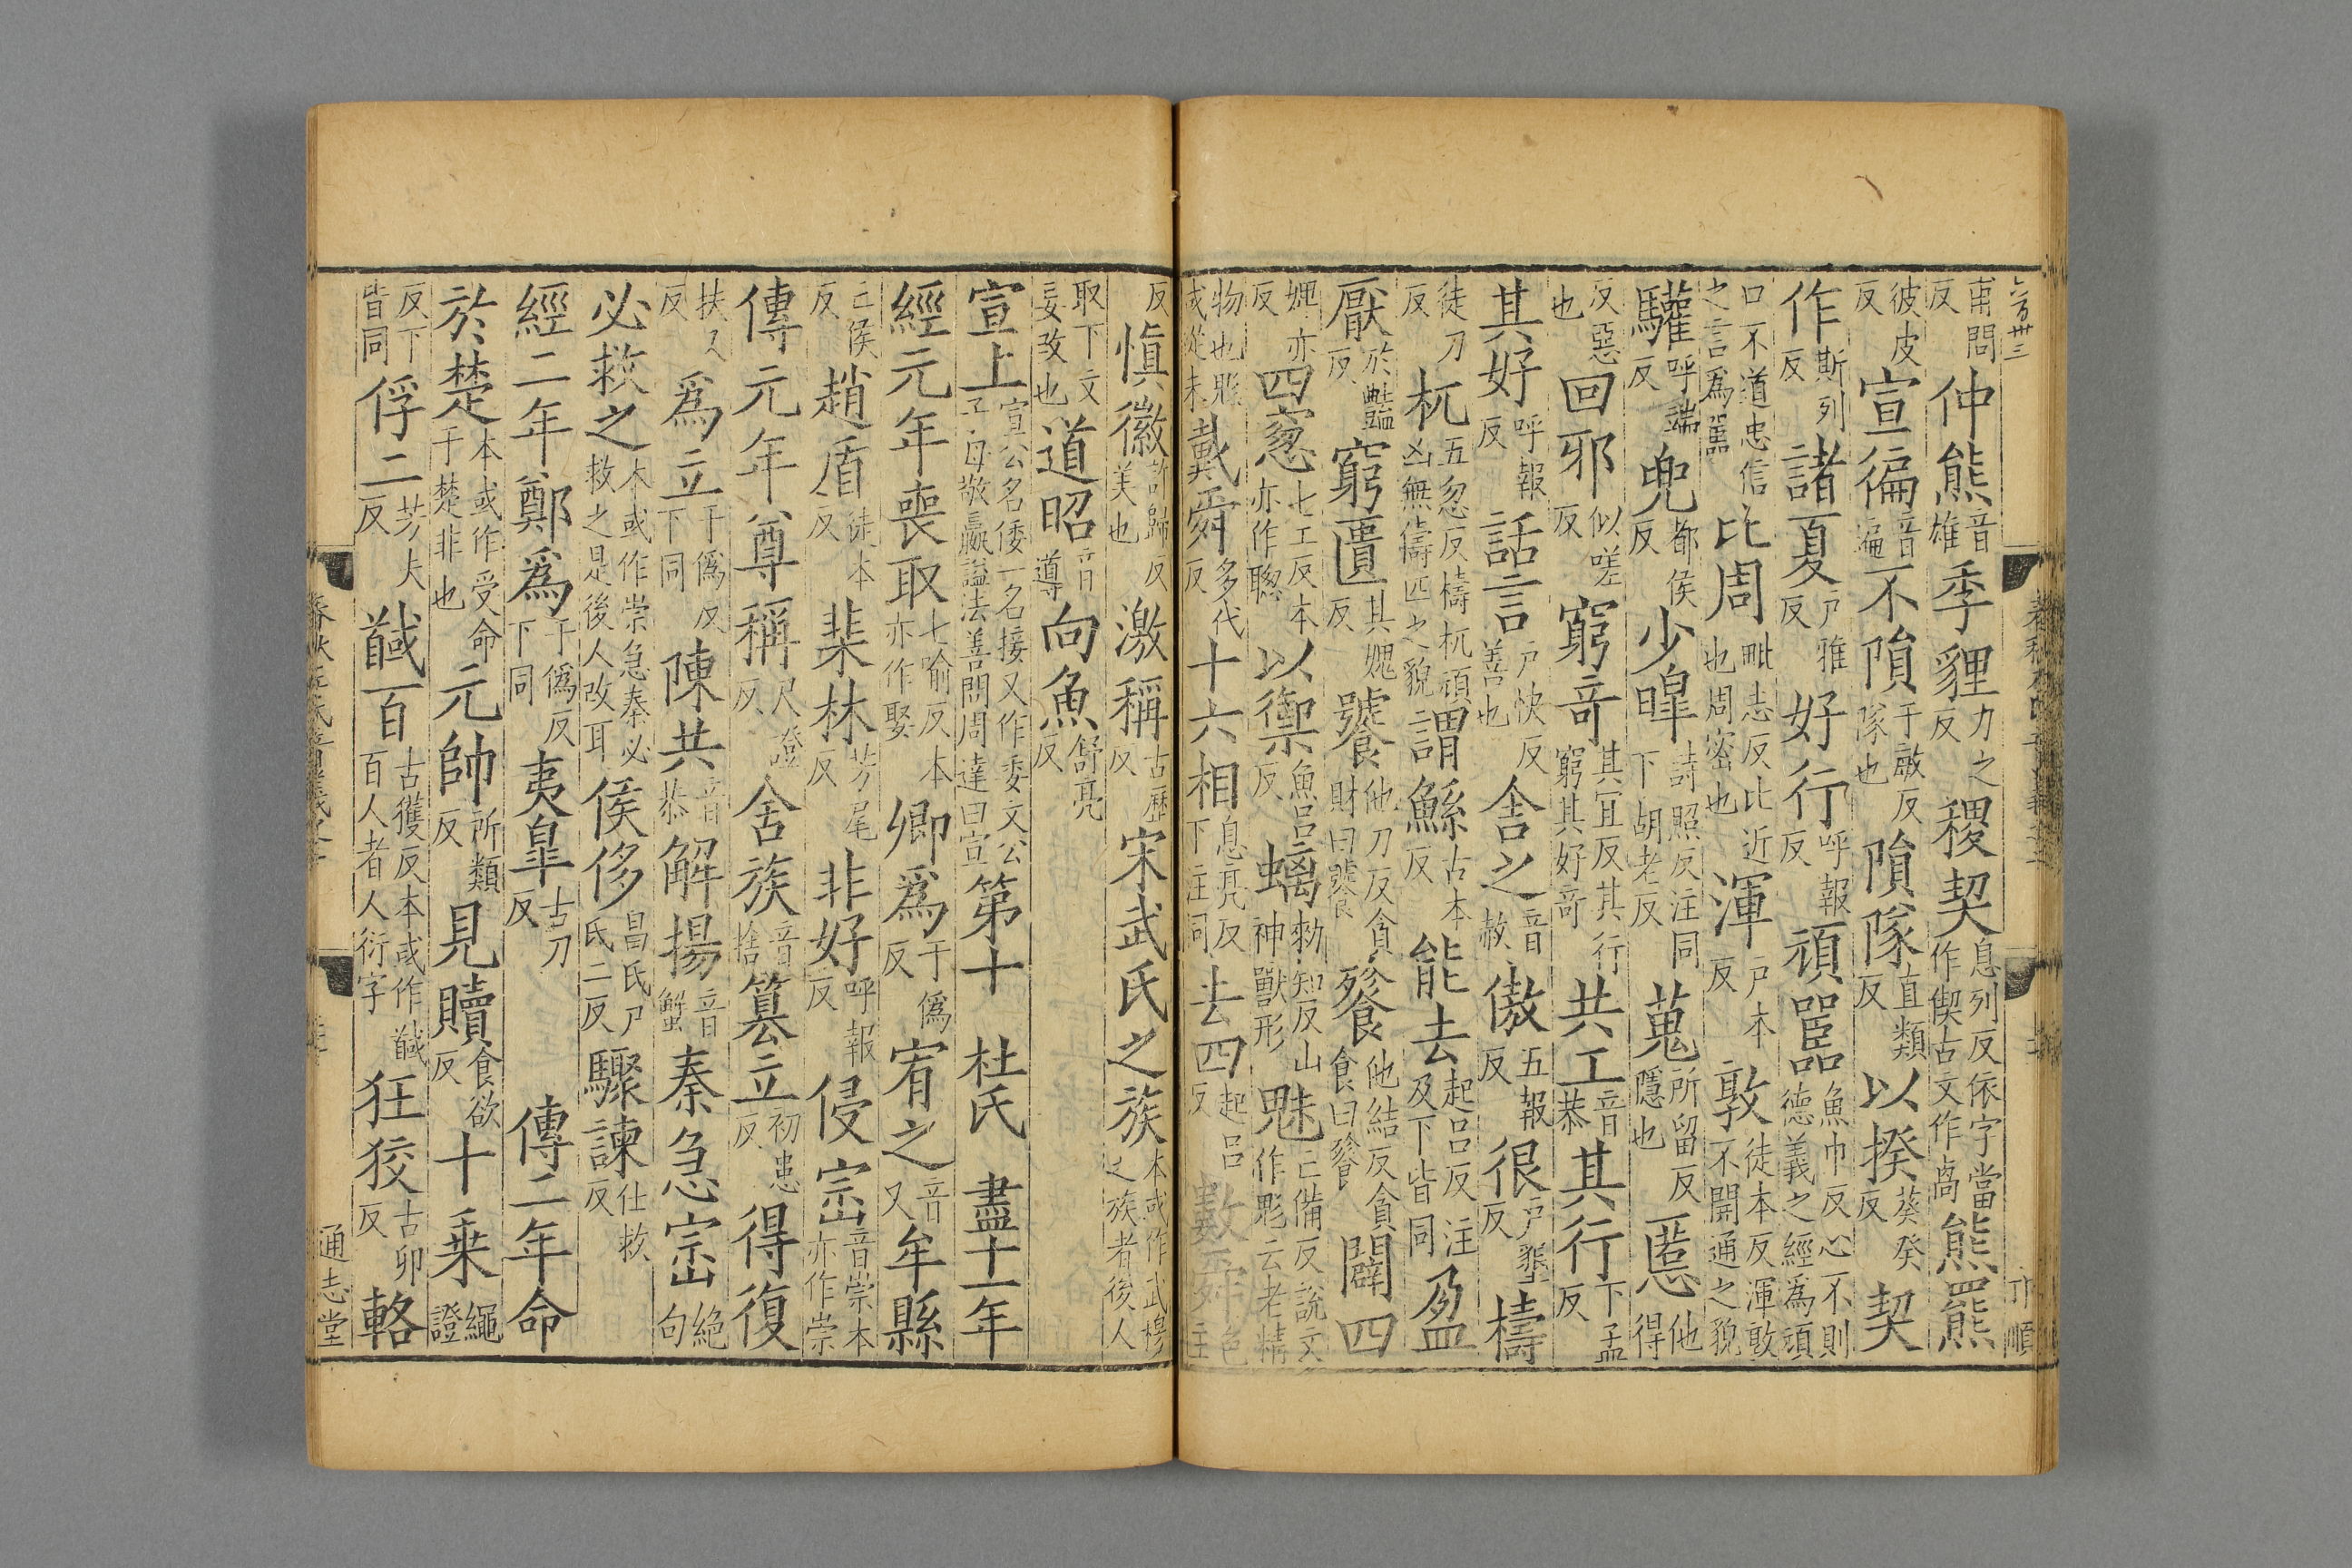 甫問反仲熊音雄季貍力之反稷契息列反依字當作偰古文作卨熊羆
彼皮反宣徧音遍不隕于敏反隊也隕隊直類反以揆葵癸反契
作斯列反諸夏戶雅反好行呼報反頑嚚魚巾反心不則德義之經爲頑
口不道忠信之言爲嚚比周毗志反比近也周密也渾戶本反敦徒本反渾敦不開通之貌
驩呼端反兜都侯反少皥詩照反注同下胡老反蒐所留反隱也慝他得
反惡也回邪似嗟反窮奇其宜反其行窮其好奇共工音恭其行下孟反
其好呼報反話言戶快反善也舍之音赦傲五報反很戶墾反檮
徒刀反杌五忽反檮杌頑凶無儔匹之貌謂鯀古本反能去起呂反注及下皆同盈
厭於豔反窮匱其媿反饕他刀反貪財曰饕餮他結反貪食曰餮闢四
婢亦反四窻七工反本亦作聦以禦魚呂反螭勑知反山神獸形魅亡備反說文作鬽云老精
物也鬽或從未戴舜多代反十六相息亮反下注同去四起呂反
反愼徽許歸反美也激稱古歷反宋武氏之族本或作武穆之族者後人
取下文妄改也道昭音導向魚舒亮反
宣上宣公名倭一名接又作委文公子母敬嬴謚法善問周達曰宣第十 杜氏 盡十一年
經元年喪取七喻反本亦作娶卿爲于僞反宥之音又牟縣
亡侯反趙盾徒本反棐林芳尾反非好呼報反侵崈音崇本亦作崇
傳元年尊稱尺證反舍族音捨篡立初患反得復
扶又反爲立于僞反下同陳共音恭解揚音蟹秦急崈絶句
必救之本或作崇急秦必救之是後人改耳侯侈昌氏尸氏二反驟諫仕救反
經二年鄭爲于僞反下同夷皐古刀反 傳二年命
於楚本或作受命于楚非也元帥所類反見贖食欲反十乗繩證
反下皆同俘二芳夫反馘百古獲反本或作馘百人者人衍字狂狡古卯反輅
通志堂